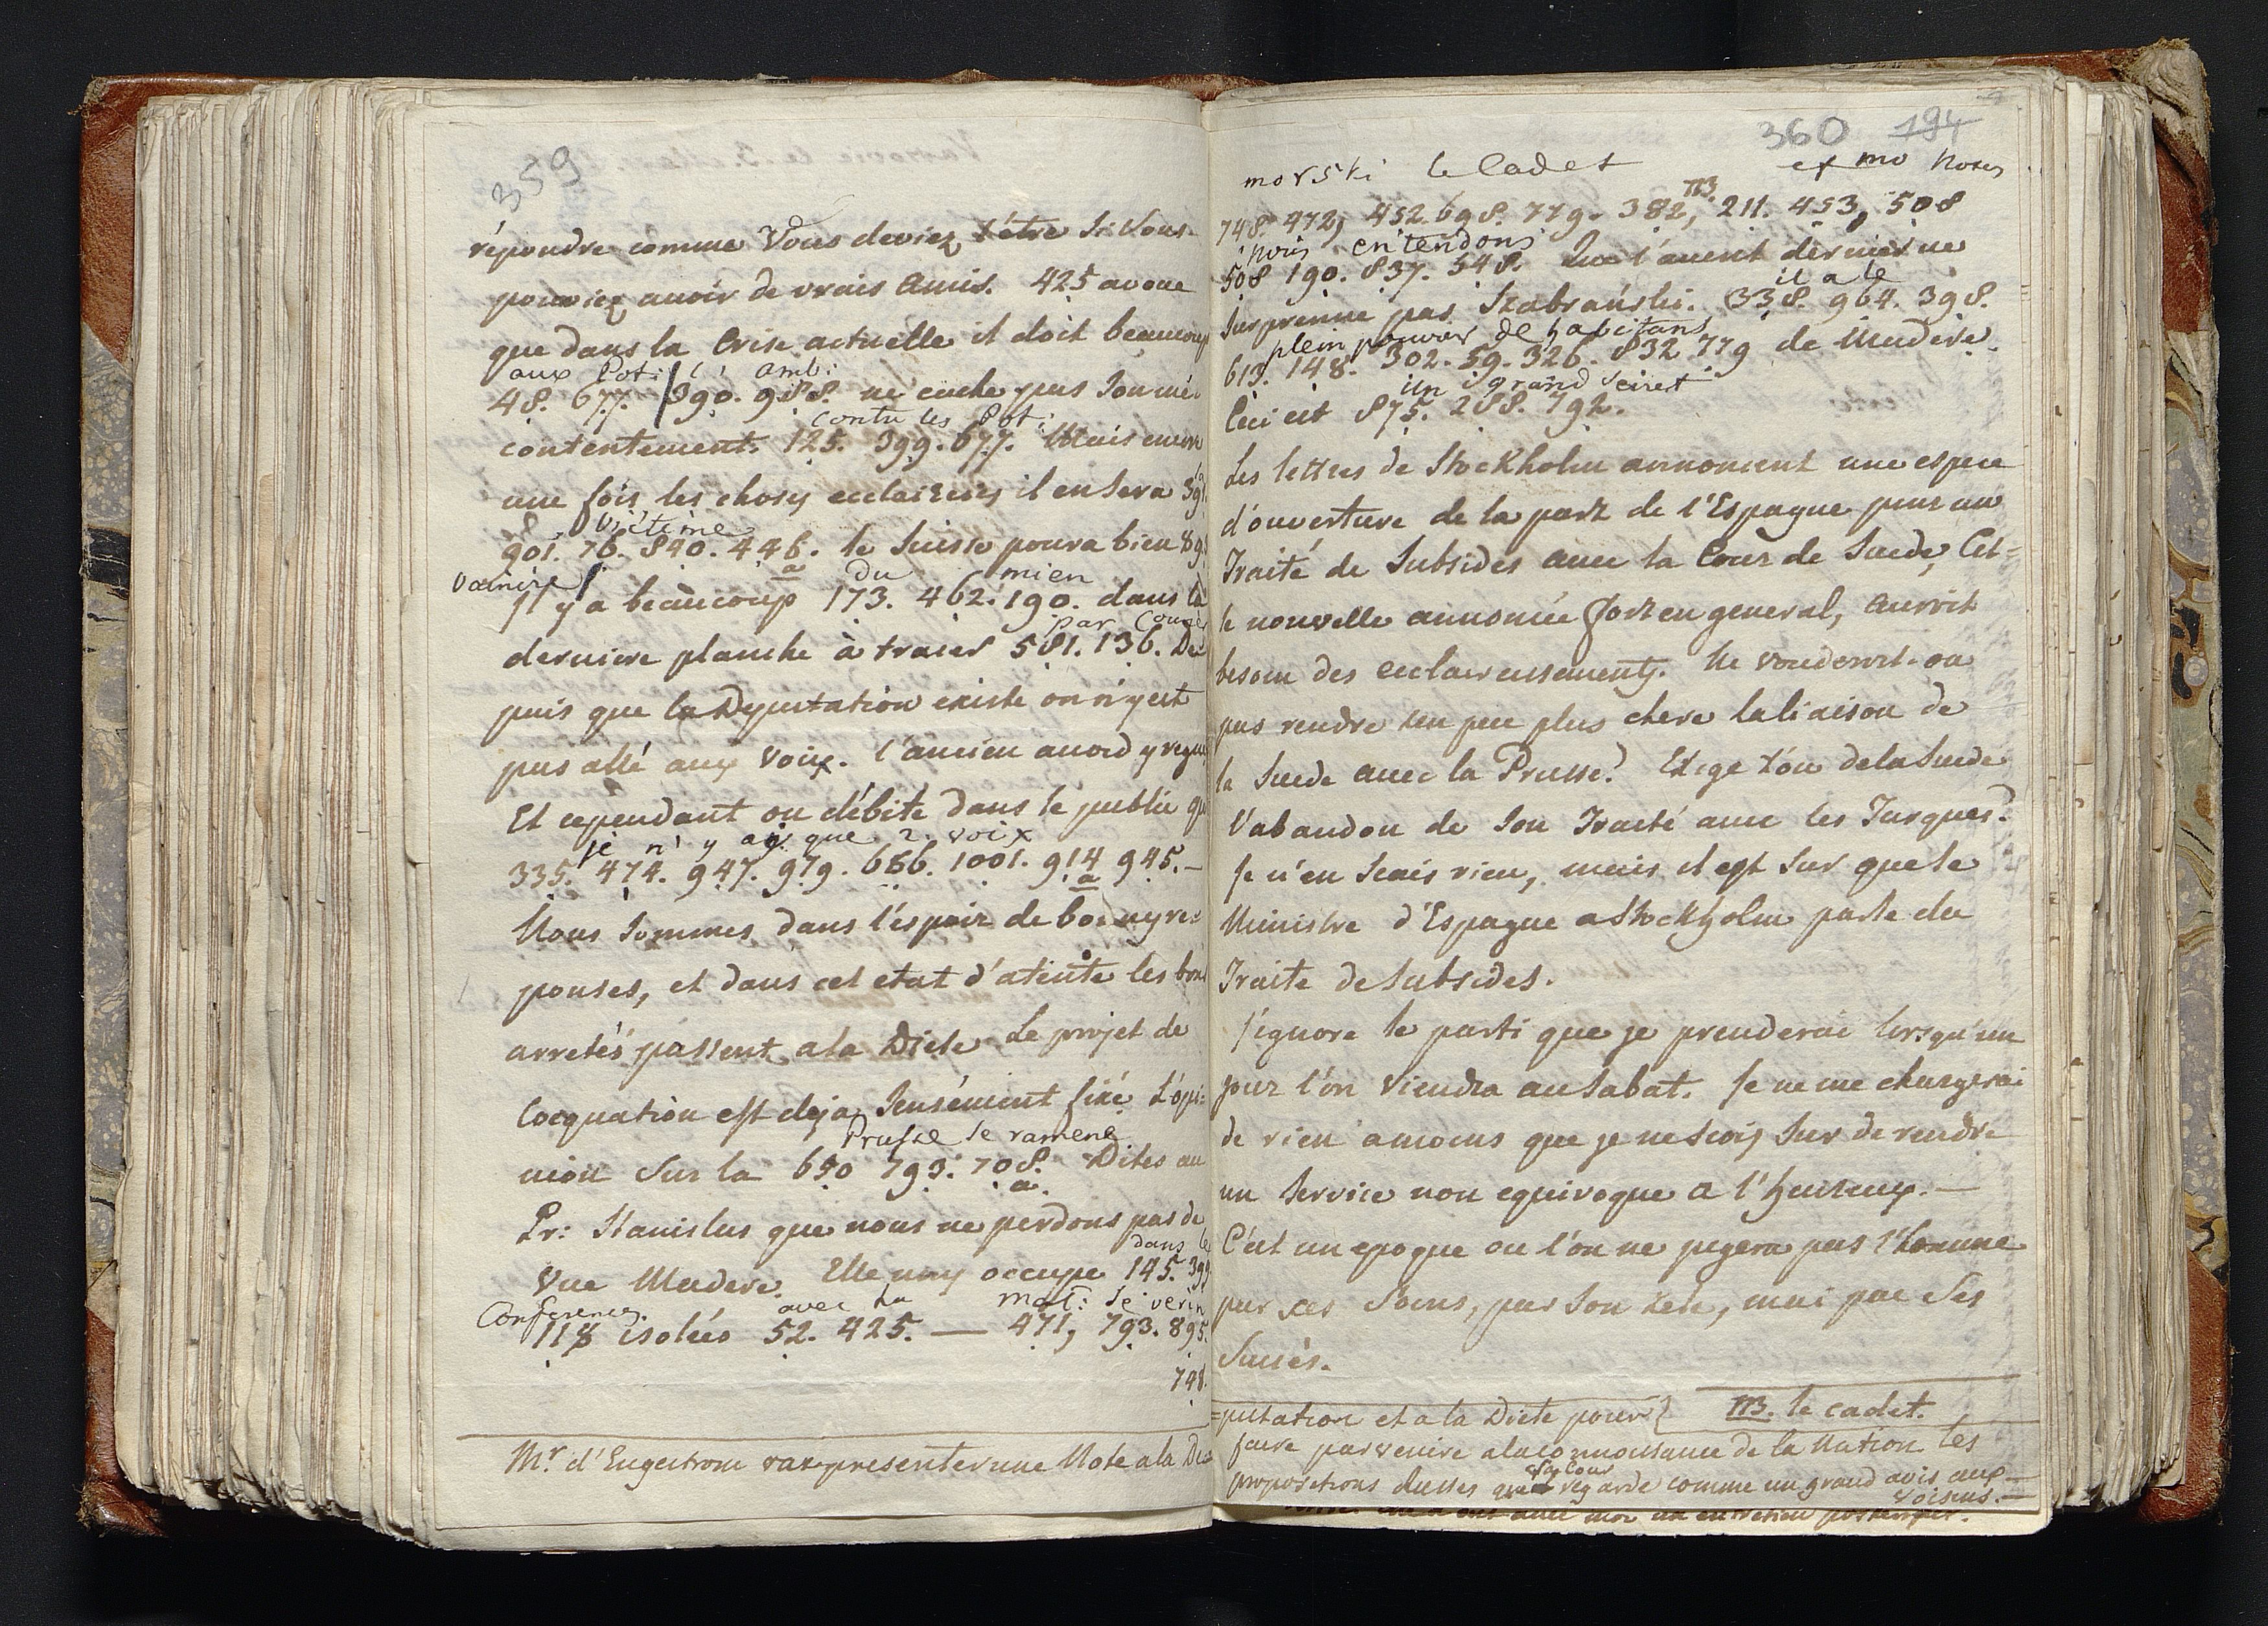 359
répondre comme Vous deviez l'être Si Vous
pouviez avoir de vrais Amis. 425 avoue
que dans la Crise actuelle il doit beaucoup
aux Pot: l' amb:
48. 677. 390. 988. ne cache pas son mé-
contre les Pot:
contentement. 125. 399. 677. Mais encore
une fois les choses ecclaircies il en sera
victime
901. 76. 840. 446. le Suisse poura bien
Vaincre a du mien
Il y a beaucoup 173. 462. 190. dans la
par Conse
derniere planche à tracer 581. 136. De
puis que la Deputation existe on n'y est
pas allé aux Voix. l'ancien acord y regne
Et cependant on débite dans le public que
je n' y ai que 2. voix
335. 474. 947. 979. 686. 1001. 914 945. —
Nous sommes dans l'espoir de bonnes re-
ponses, et dans cet etat d'atente les bons
arretés passent a la Diete Le projet de
Coequation est deja sensément fixé. L'opi-
Prusse se ramene
nion sur la 650 793. 708. Dites au
Pr: Stanislas que nous ne perdons pas de
dans les
Vue Madere. Elle nous occupe 145. 399
Conferences avec la Mat: Severin
118 isolées 52. 425. — 471, 793. 895.
748.
Mr. d'Engestrom va presenter une Note a la De-
360 194
morski le Cadet et mo notes
TB
748. 472, 452. 698. 779. 382, 211. 453, 508
nous entendons
508 190. 837. 548. Que l'avent dernier ne
il a le
surprenne pas Szabrański. 338. 964. 398.
plein pouvoir de habitans
613. 148. 302. 59. 326. 832 779 de Madere.
un grand secret
Ceci est 875. 288. 792.
Les lettres de Stockholm annoncent une espece
d'ouverture de la part de l'Espagne pour un
Traité de Subsides avec la Cour de Suede, Cet-
te nouvelle annoncée fort en general, auroit
besoin des ecclaircissements. Ne vouderoit-on
pas rendre un peu plus chere la liaison de
la Suede avec la Prusse? Exige t'on de la Suede
l'abandon de son Traité avec les Turques?
Je n'en scais rien, mais il est sur que le
Ministre d'Espagne a Stockholm parle du
Traité de Subsides.
J'ignore le parti que je prenderai lorsqu'un
jour l'on Viendra au Sabat. Je ne me chargerai
de rien amoins que je ne sois sur de rendre
un service non equivoque a l'heureux. —
C'est un epoque ou l'on ne jugera pas l'homme
par ses soins, par son zele, mai par Ses
Succès.
TB. le cadet.
=putation et a la Diete pour
faire parvenire a la connoissance de la Nation les
sa Cour
propositions Russes que regarde comme un grand avis aux
voisins. —
avec moi un entretien